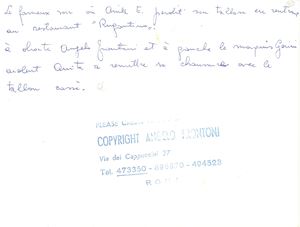 Le fameux soir où Anita E. perdit son talon en rentrant
au restaurant "Rugantino".
à droite Angelo Frontoni et à gauche le marquis
aidant Anita à remettre sa chaussure avec le
talon cassé.
PLEASE CREDIT
COPYRIGHT ANGELO FRONTONI
Via dei Cappuccini 27
Tel. 473350 - 494523
ROMA